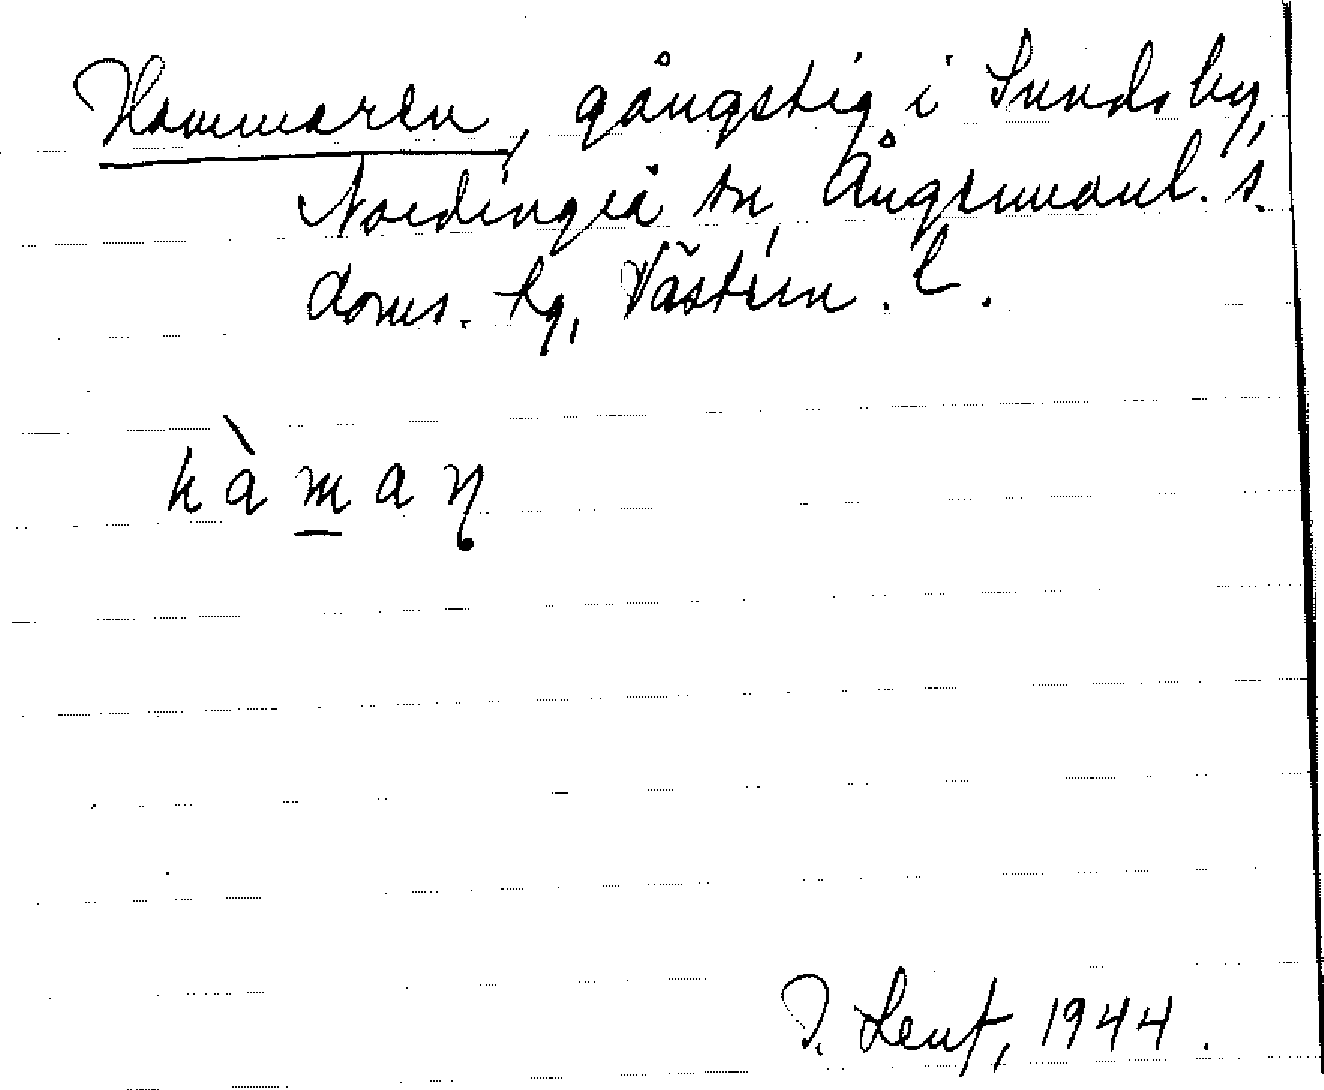 Hammaren, gångstig i Sunds by,
Nordingrå sn, Ångermanl. s.
doms. tg, Västern. l.
hàman
1944.